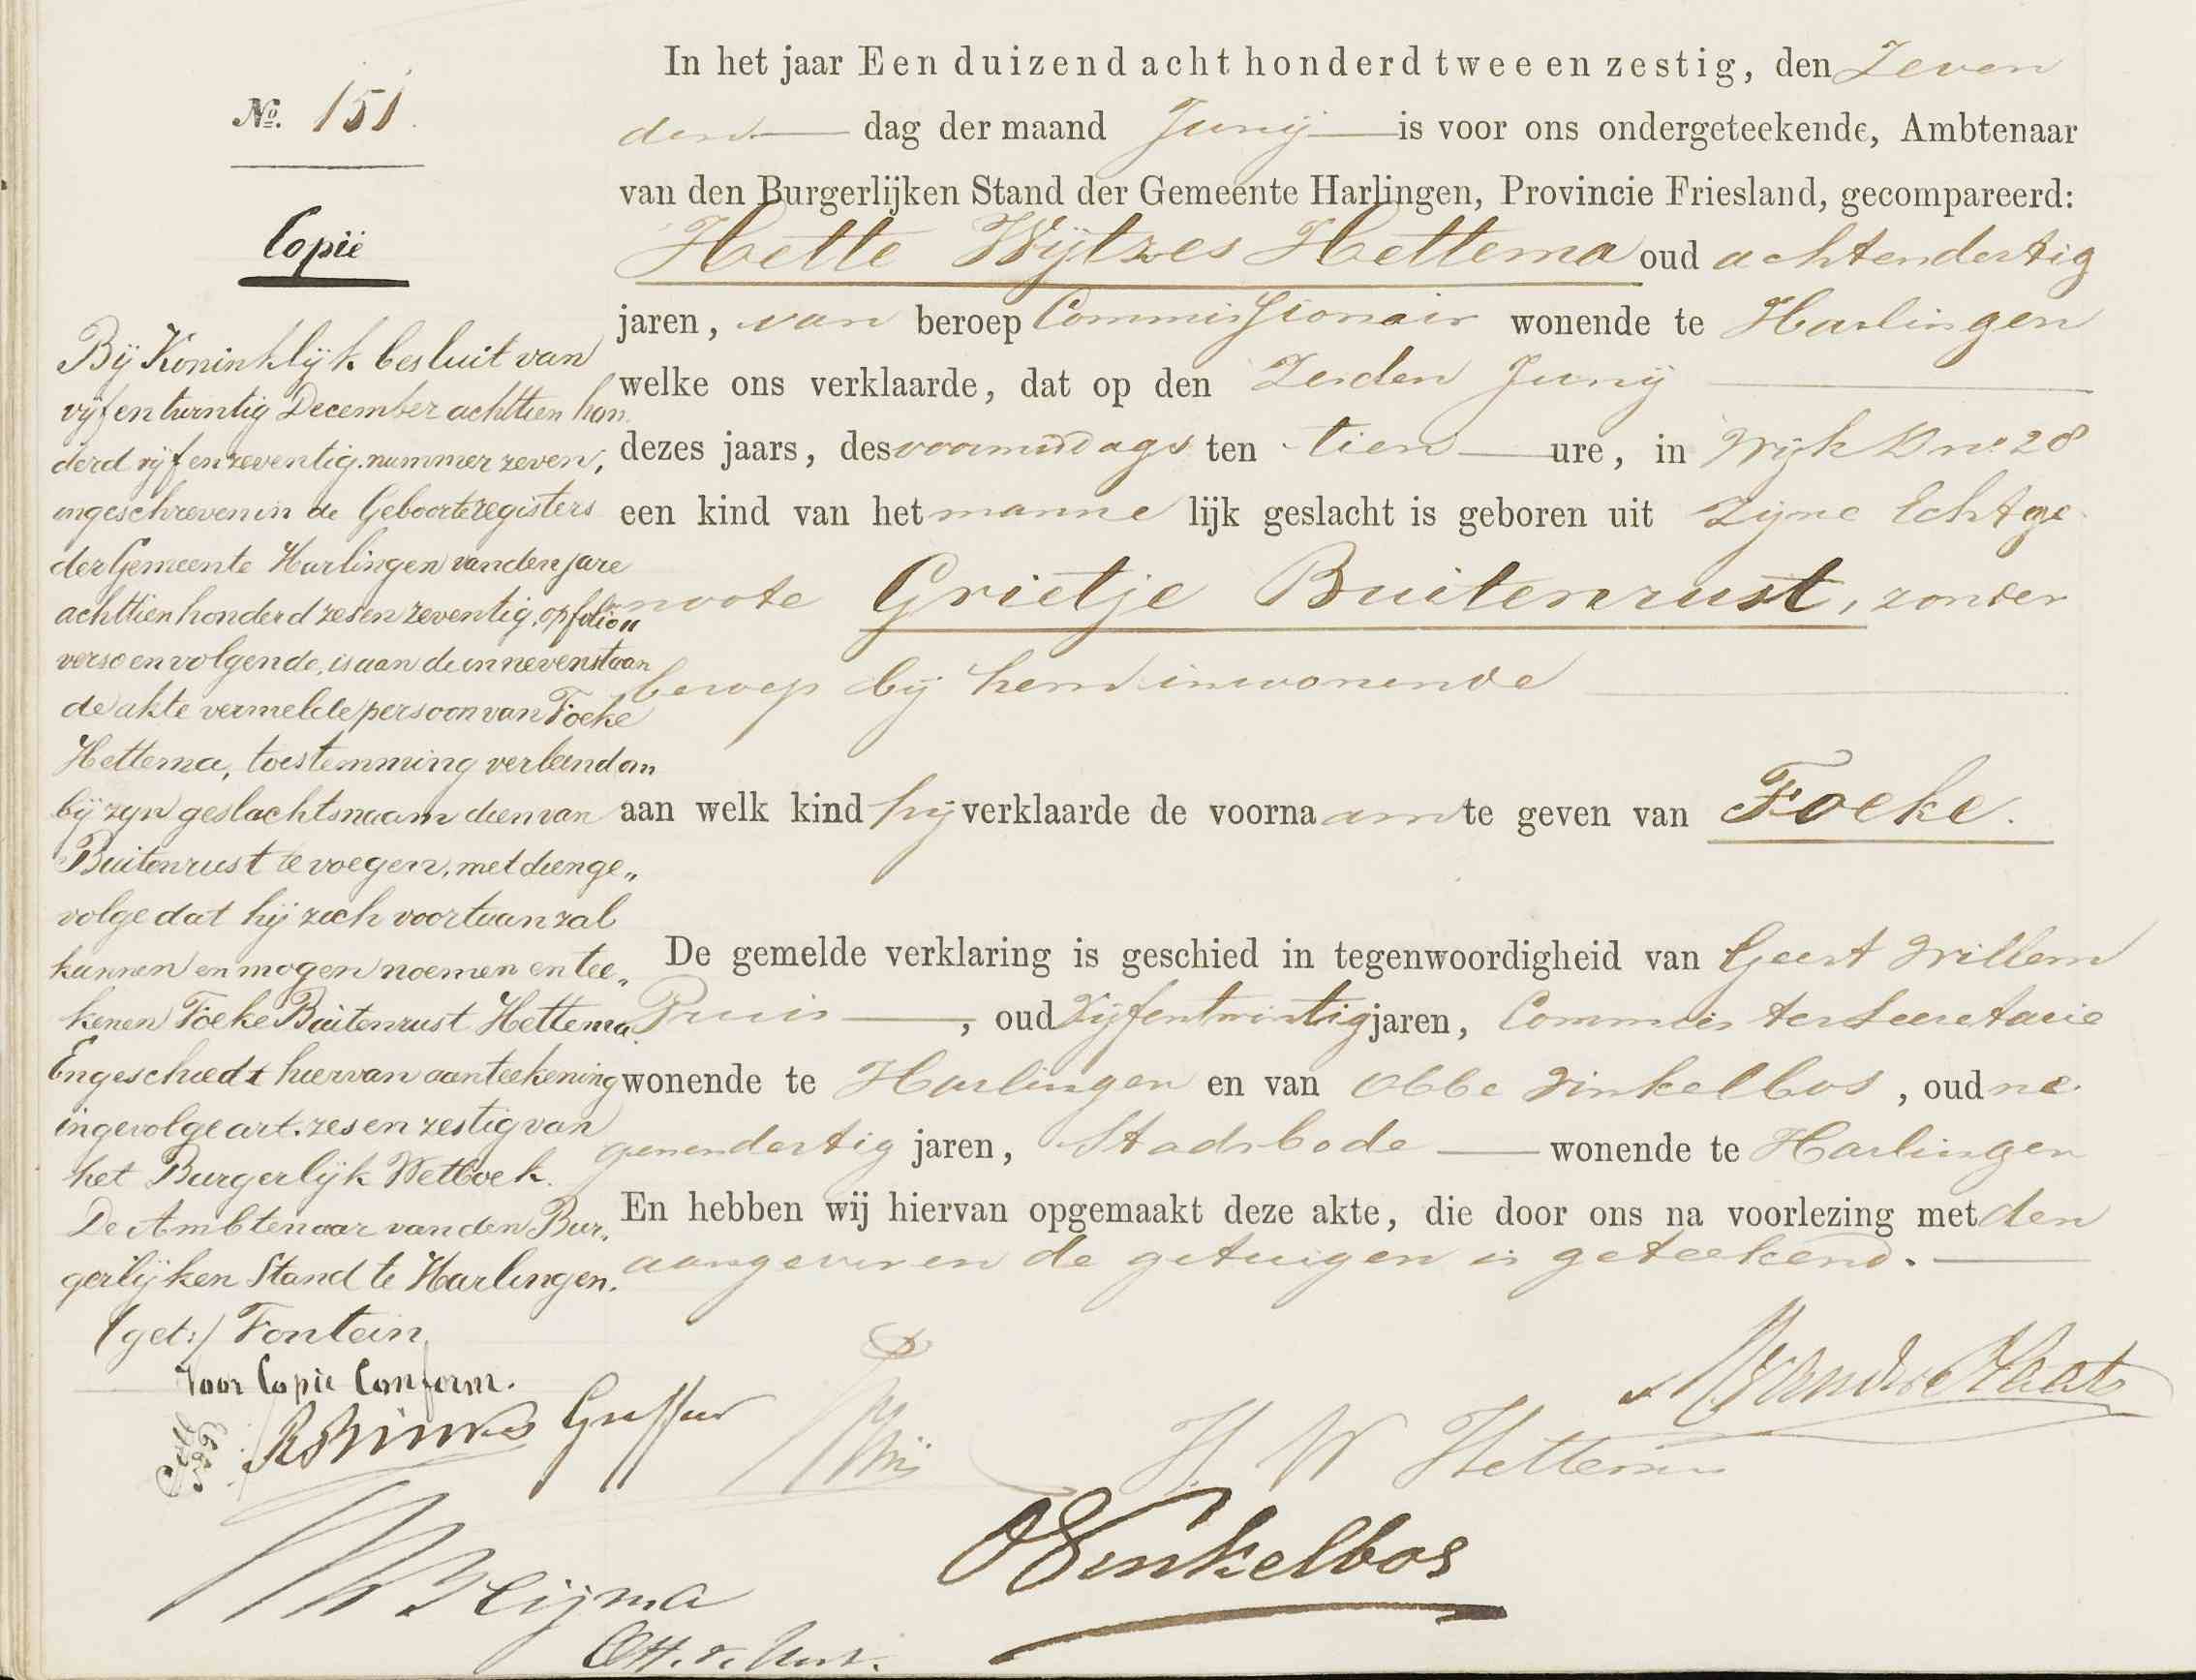 No. 151.
Copie
Bij Koninklijk besluit van
vijf en twintig December achttien hon
derd vijf en zeventig nummer zeven,
ingeschreven in de Geboorteregisters
der Gemeente Harlingen van den jare
achttien honderd zes en zeventig, op folio 11
verso en volgende, is aan de in nevenstaan
de akte vermelde persoon van Foeke
Hettema, toestemming verleend om
bij zijn geslachtsnaam dien van
Buitenrust te voegen, met dien ge„
volge dat hij zich voortaan zal
kunnen en mogen noemen en tee„
kenen Foeke Buitenrust Hettema.
En geschiedt hiervan aanteekening
ingevolge art. zes en zestig van
het Burgerlijk Wetboek.
De Ambtenaar van den Bur„
gerlijken Stand te Harlingen.
(get:) Fontein
Voor Copie Conform.
Griffier
In het jaar Een duizend acht honderd twee en zestig, den Zeven
den dag der maand Junij is voor ons ondergeteekende, Ambtenaar
van den Burgerlijken Stand der Gemeente Harlingen, Provincie Friesland, gecompareerd:
Hette Wijtzes Hettema oud achtendertig
jaren, van beroep Commissionair wonende te Harlingen
welke ons verklaarde, dat op den Zesden Junij
dezes jaars, des voormiddags ten tien ure, in Wijk D no 28
een kind van het mannelijk geslacht is geboren uit zijne Echtge
noote Grietje Buitenrust, zonder
beroep bij hem inwonende
aan welk kind hij verklaarde de voornaam te geven van Foeke.
De gemelde verklaring is geschied in tegenwoordigheid van Geert Willem
Pruis, oud Vijfentwintig jaren, Commies ter Secretarie
wonende te Harlingen en van Obbe Winkelbos, oud ne
genendertig jaren, Stadsbode wonende te Harlingen
En hebben wij hiervan opgemaakt deze akte, die door ons na voorlezing met den
aangever en de getuigen is geteekend.
H W Hettema
OWinkelbos